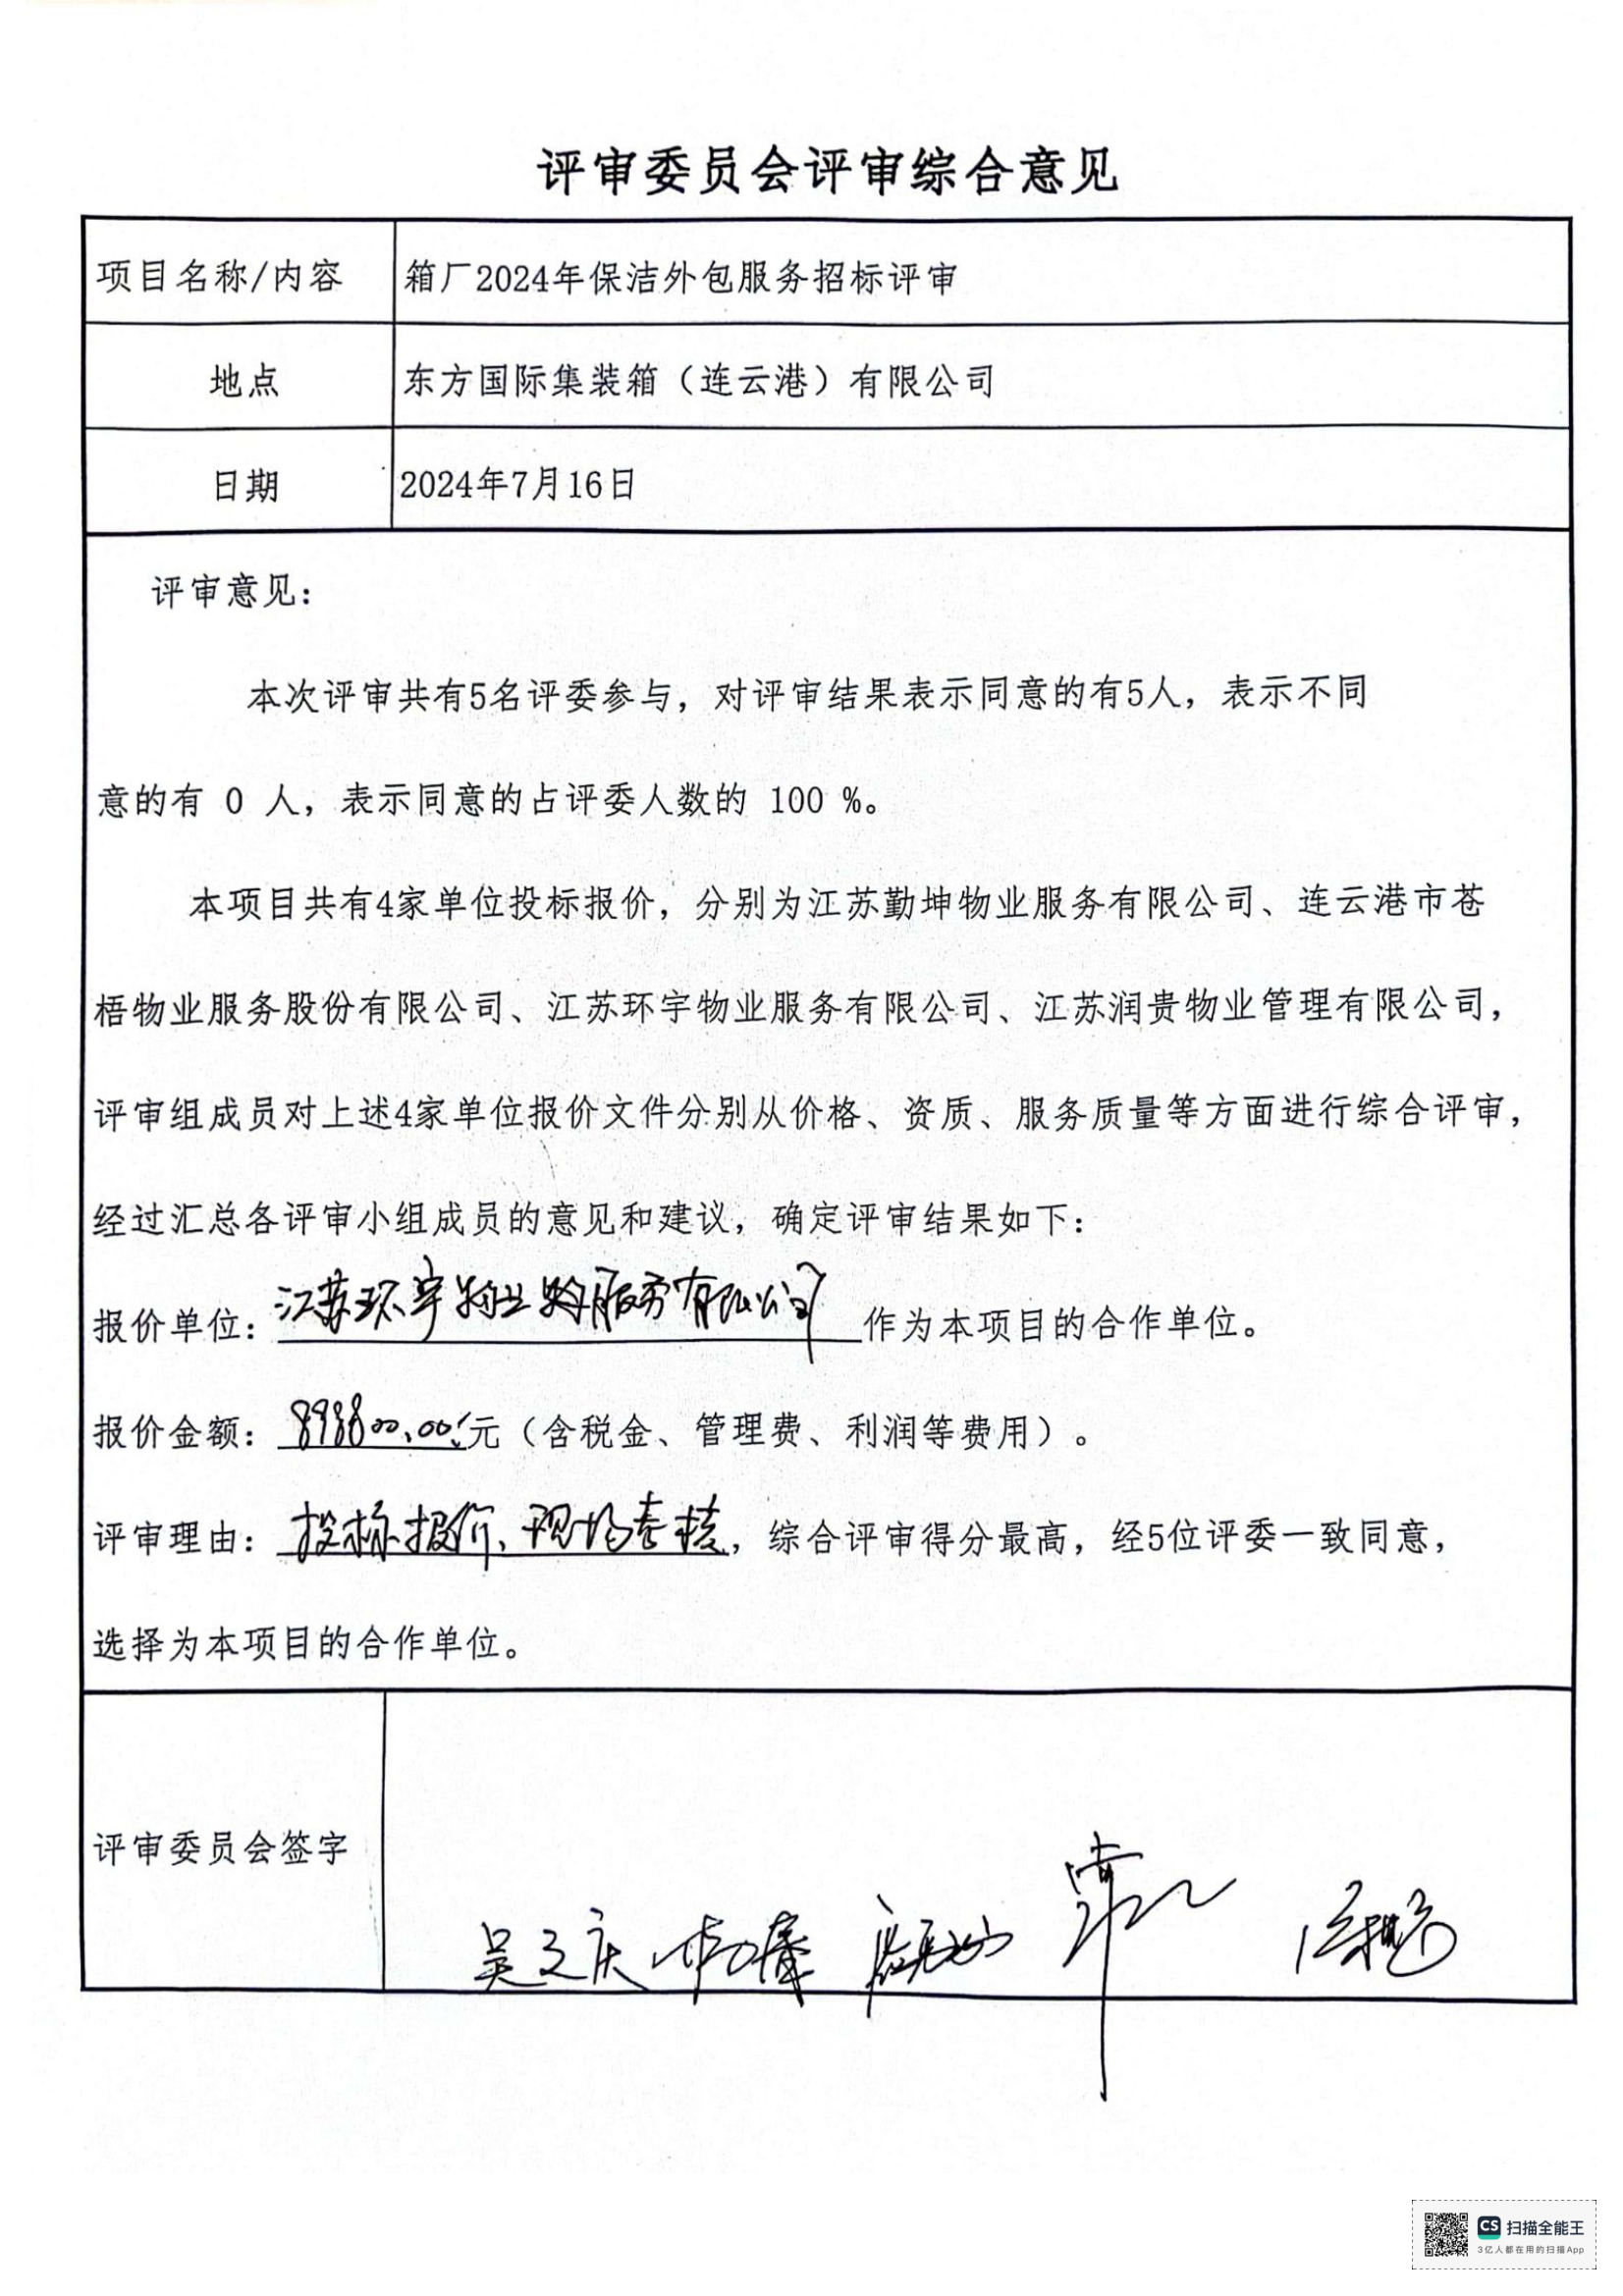 评审委员会评审综合意见
项目名称/内容 箱厂2024年保洁外包服务招标评审
地点 东方国际集装箱（连云港）有限公司
日期 2024年7月16日
评审意见：
本次评审共有5名评委参与，对评审结果表示同意的有5人，表示不同
意的有 0 人，表示同意的占评委人数的 100 %。
本项目共有4家单位投标报价，分别为江苏勤坤物业服务有限公司、连云港市苍
梧物业服务股份有限公司、江苏环宇物业服务有限公司、江苏润贵物业管理有限公司，
评审组成员对上述4家单位报价文件分别从价格、资质、服务质量等方面进行综合评审，
经过汇总各评审小组成员的意见和建议，确定评审结果如下：
报价单位：江苏环宇物业服务有限公司 作为本项目的合作单位。
报价金额：元（含税金、管理费、利润等费用）。
评审理由：投标报价、现场查核，综合评审得分最高，经5位评委一致同意，
选择为本项目的合作单位。
评审委员会签字
吴文庆
CS 扫描全能王
3亿人都在用的扫描App